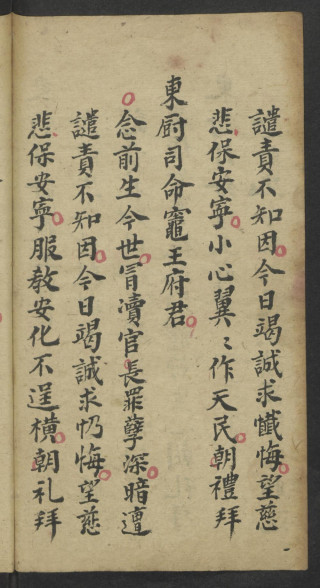 譴責不知因今日竭誠求懺悔望慈
悲保安寧小心翼〻作天民朝禮拜
東厨司命竈王府君
念前生今世冒瀆官長罪孽深暗遭
譴責不知因今日竭誠求忏悔望慈
悲保安寧服教安化不逞橫朝礼拜